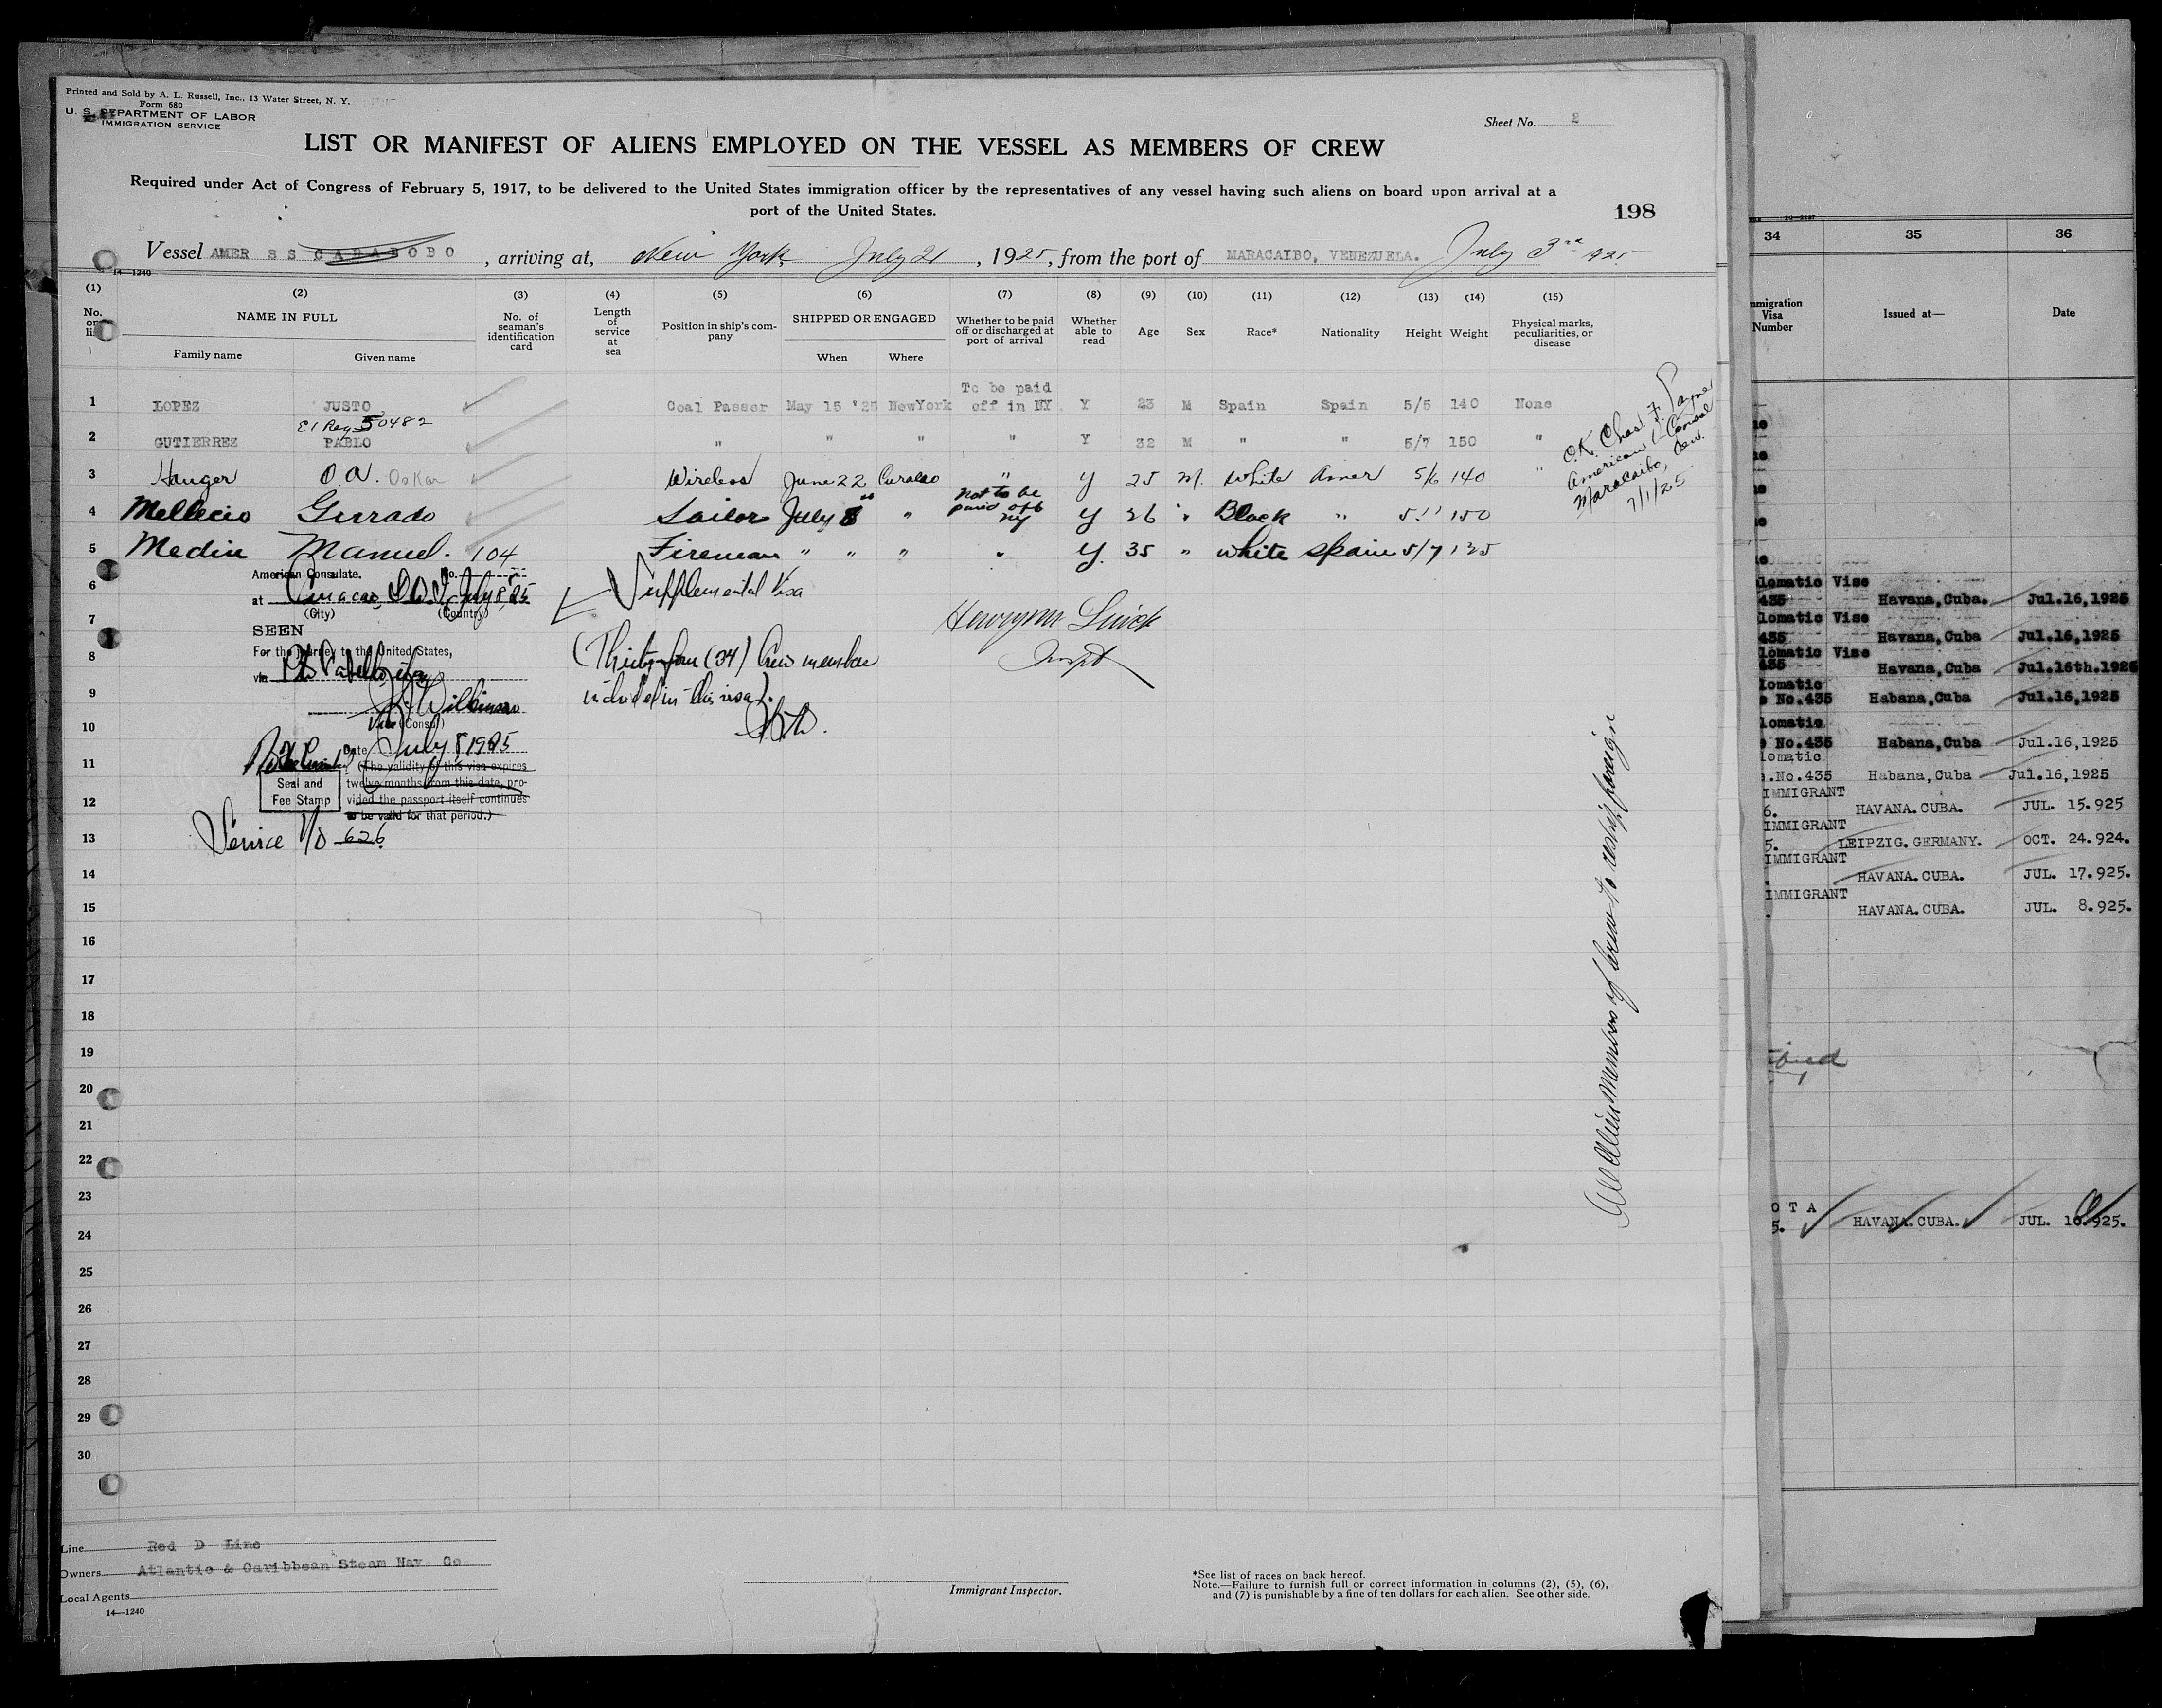 Printed and Sold by A. L. Russell, Inc., 13 Water Street, N. Y.
Form 680
U. S. DEPARTMENT OF LABOR
IMMIGRATION SERVICE
Sheet No. 2
LIST OR MANIFEST OF ALIENS EMPLOYED ON THE VESSEL AS MEMBERS OF CREW
Required under Act of Congress of February 5, 1917, to be delivered to the United States immigration officer by the representatives of any vessel having such aliens on board upon arrival at a
port of the United States.
198
Vessel AMER S S CARABOBO, arriving at, New York, July 21, 1925, from the port of MARACAIBO, VENEZUELA. July 3rd 1925.
14—1240
(1) (2) (3) (4) (5) (6) (7) (8) (9) (10) (11) (12) (13) (14) (15)
No. on list
NAME IN FULL
Family name Given name
No. of seaman's identification card
Length of service at sea
Position in ship's company
SHIPPED OR ENGAGED
When Where
Whether to be paid off or discharged at port of arrival
Whether able to read
Age Sex Race* Nationality Height Weight
Physical marks, peculiarities, or disease
1 LOPEZ JUSTO Coal Passer May 15 '25 NewYork To be paid off in NY Y 23 M Spain Spain 5/5 140 None
EI Reg 50482
2 GUTIERREZ PABLO " " " " Y 32 M " " 5/7 150 "
3 Hauger O.A. Oskar Wireless June 22 Curacao " Y 25 M. White Amer 5/6 140 "
4 Mellecio Gerrado Sailor July 8 " not to be paid off NY Y 26 " Black " 5.11 150
5 Medin Manuel. 104 Fireman " " " " Y. 35 " white Spain 5/7 135
O.K. Chas. F. Payne
American Consul
Maracaibo, Ven.
7/1/25
American Consulate. No.
at Curacao, D.W.I. July 8, 25
(City) (Country)
SEEN
For the journey to the United States,
via
Wilkinson
Vice (Consul)
Date July 8 1925
(The validity of this visa expires
twelve months from this date, pro-
vided the passport itself continues
to be valid for that period.)
Seal and
Fee Stamp
Service No 626
Supplemental Visa
(Thirty-four (34) Crew members
included in this visa).
Inspt
All Alien Members of Crew to reship foreign
6
7
8
9
10
11
12
13
14
15
16
17
18
19
20
21
22
23
24
25
26
27
28
29
30
Line Red D Line
Owners Atlantic & Caribbean Steam Nav. Co.
Local Agents
14—1240
Immigrant Inspector.
*See list of races on back hereof.
Note.—Failure to furnish full or correct information in columns (2), (5), (6),
and (7) is punishable by a fine of ten dollars for each alien. See other side.
34 35 36
mmigration Visa Number
Issued at—
Date
lomatic Vise
435 Havana, Cuba. Jul.16,1925
lomatic Vise
435 Havana, Cuba Jul.16,1925
lomatic Vise
435 Havana, Cuba Jul.16th.1925
lomatic
e No.435 Habana, Cuba Jul.16,1925
lomatic
e No.435 Habana, Cuba Jul.16,1925
lomatic
.No.435 Habana, Cuba Jul.16,1925
IMMIGRANT
6. HAVANA.CUBA. JUL. 15.925
IMMIGRANT
5. LEIPZIG.GERMANY. OCT. 24.924.
IMMIGRANT
HAVANA.CUBA. JUL. 17.925.
IMMIGRANT
HAVANA.CUBA. JUL. 8.925.
O T A
5. HAVANA.CUBA. JUL. 10.925.